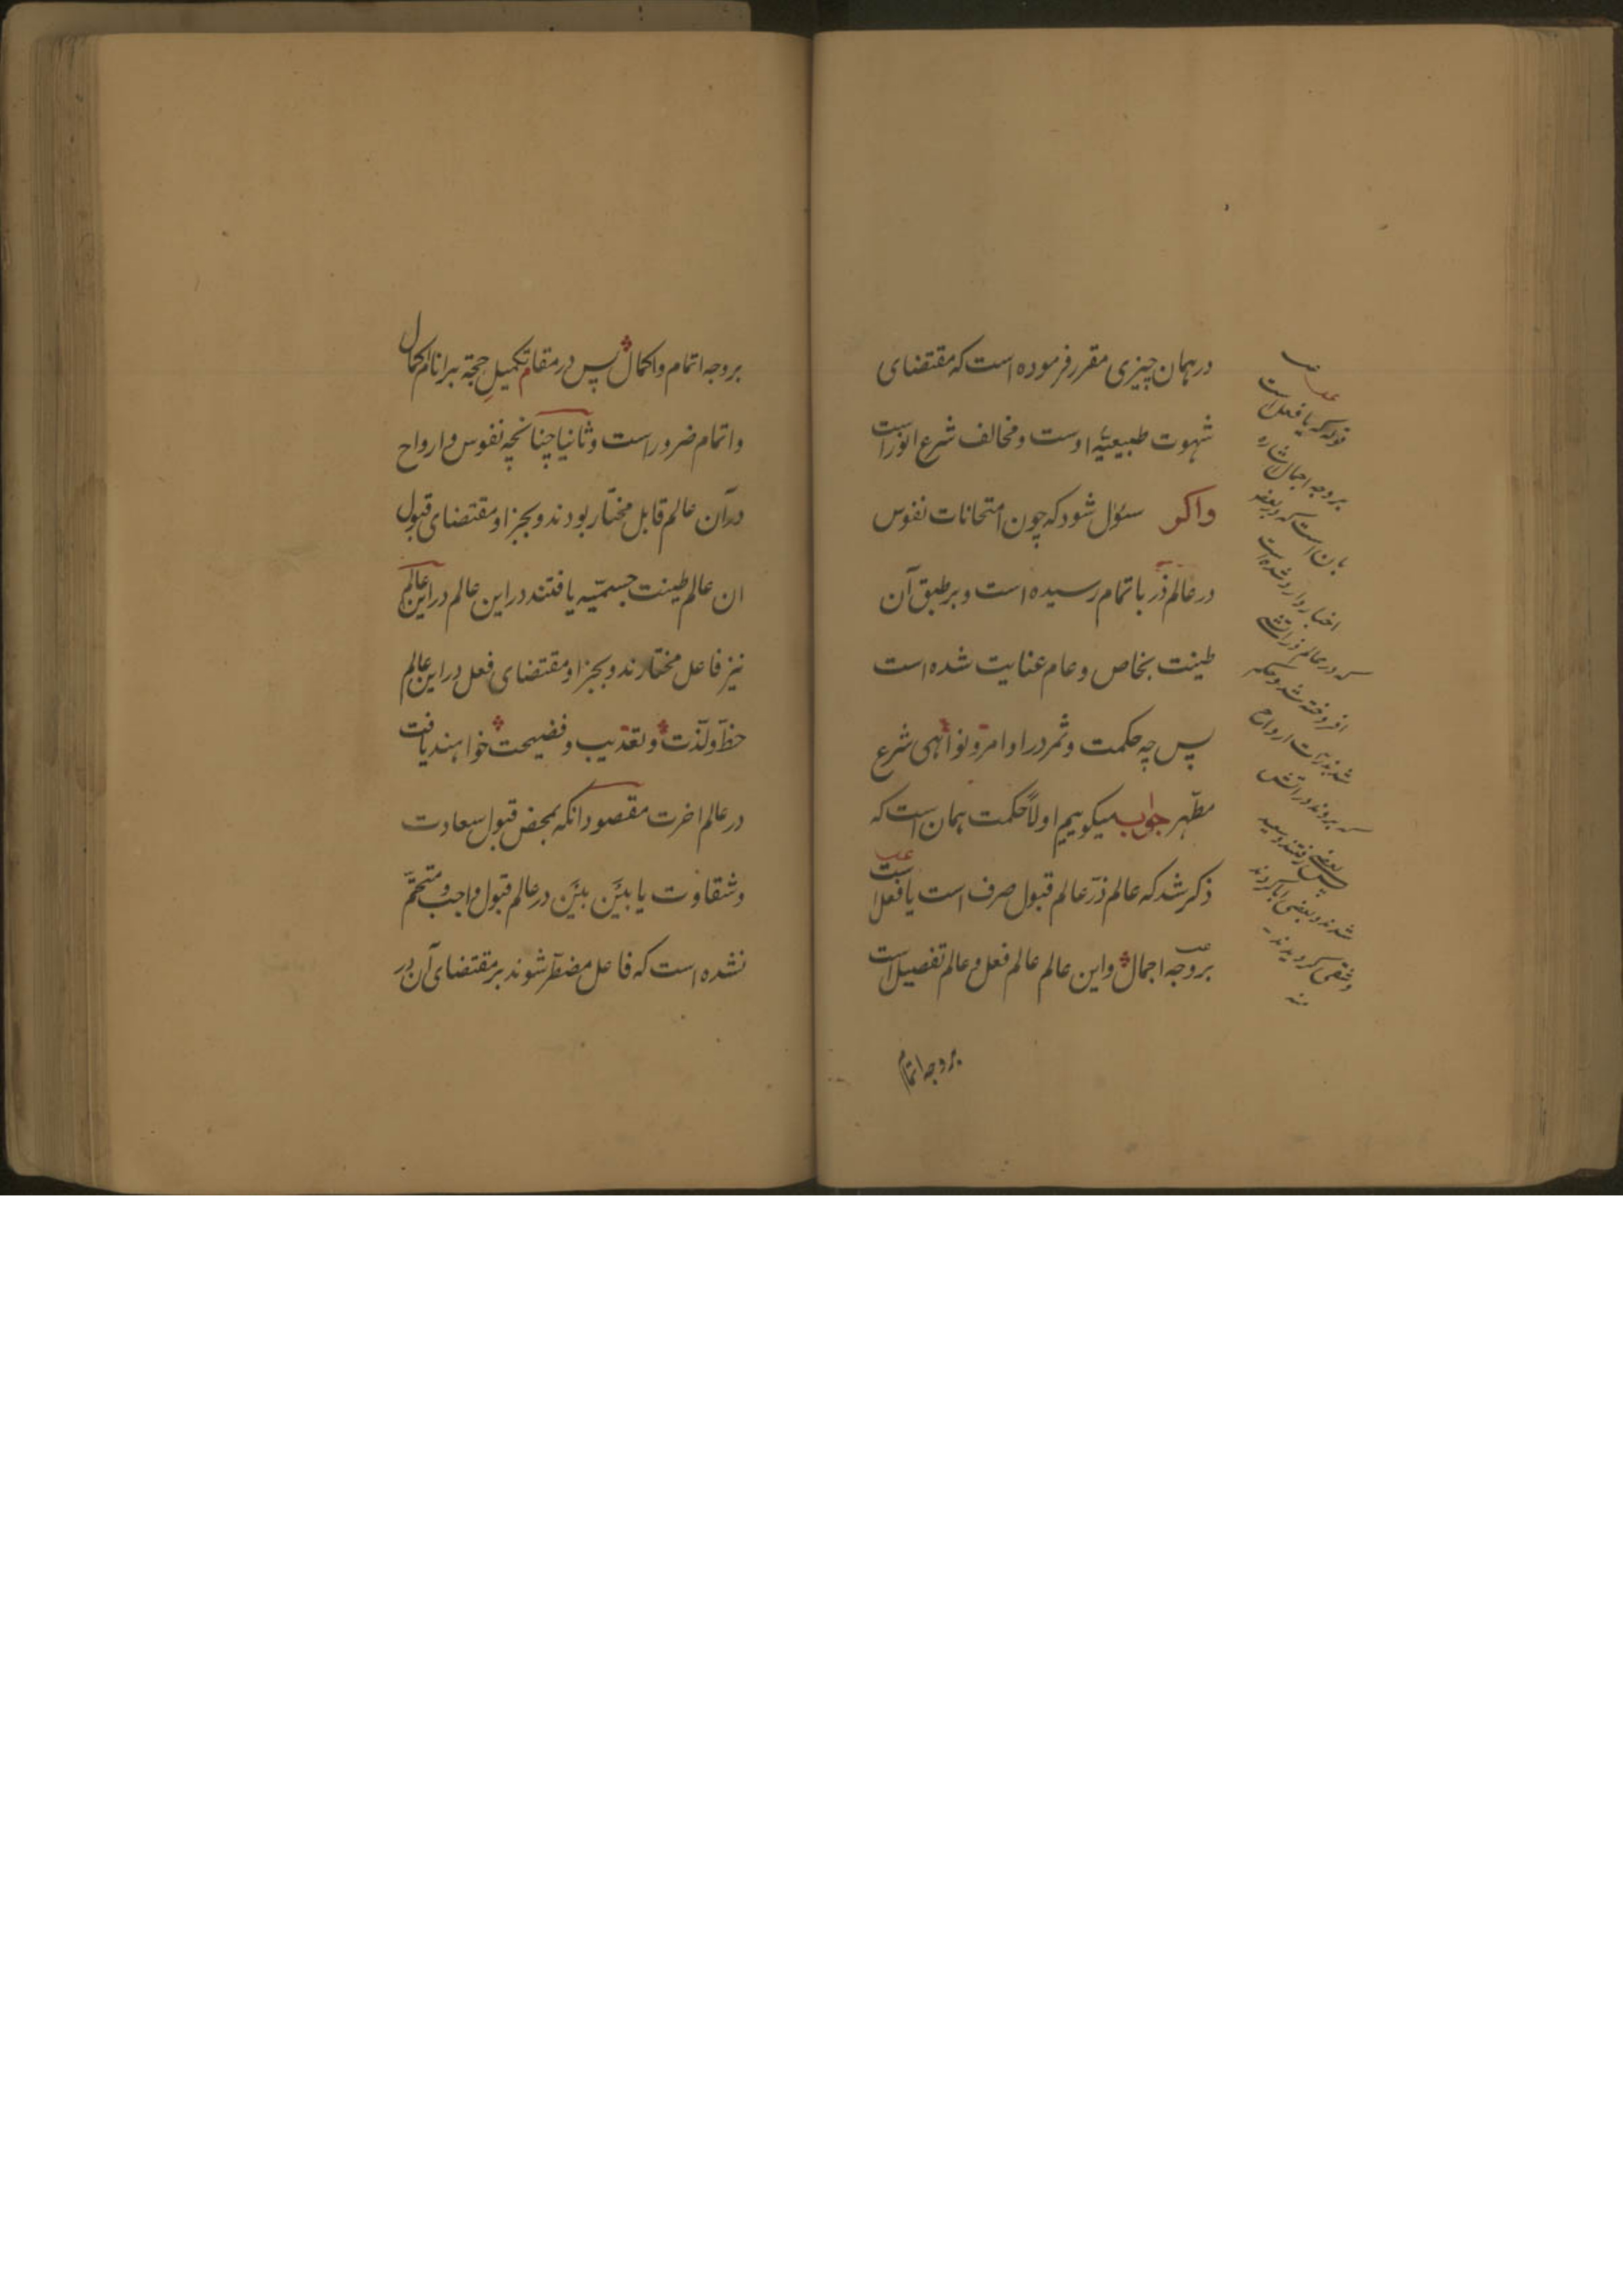 در همان چیزی مقرر فرموده است که مقتضای
شهوت طبیعیّهٔ اوست و مخالف شرع انور است
واکر سئول شود که چون امتحانات نفوس
در عالم ذر باتمام رسیده است و بر طبق آن
طینت بخاص و عام عنایت شده است
پس چه حکمت و ثمر در اوامر و نواهی شرع
مطهر جواب میکوییم اولاً حکمت همان است که
ذکر شد که عالم ذرّ عالم قبول صرف است یا فعل است
بر وجه اجمال و این عالم عالم فعل و عالم تفصیل است
بر وجه اتمام
قوله که یا فعل است
بر وجه اجمال اشاره
بان است که در بعضی
اخبار وارد شده است
که در عالم ذر آتشی
افروخته شد و حکم
شد بذرّات ارواح
که بروند در آتش
پس بعضی رفتند و سعید
شدند و بعضی ابا کردند
و شقی کردیدند
منه
بر وجه اتمام و اکمال پس در مقام تکمیل حجة بر انام اکمال
و اتمام ضرور است و ثانیا چنانچه نفوس و ارواح
در آن عالم قابل مختار بودند و بجزا و مقتضای قبول
ان عالم طینت جسمیّه یافتند در این عالم در این عالم
نیز فاعل مختارند و بجزا و مقتضای فعل در این عالم
حظّ و لذّت و تعذیب و فضیحت خواهند یافت
در عالم اخرت مقصود انکه بمحض قبول سعادت
و شقاوت یا بیَن بیَن در عالم قبول واجب و متحتّم
نشده است که فاعل مضطر شوند بر مقتضای آن در